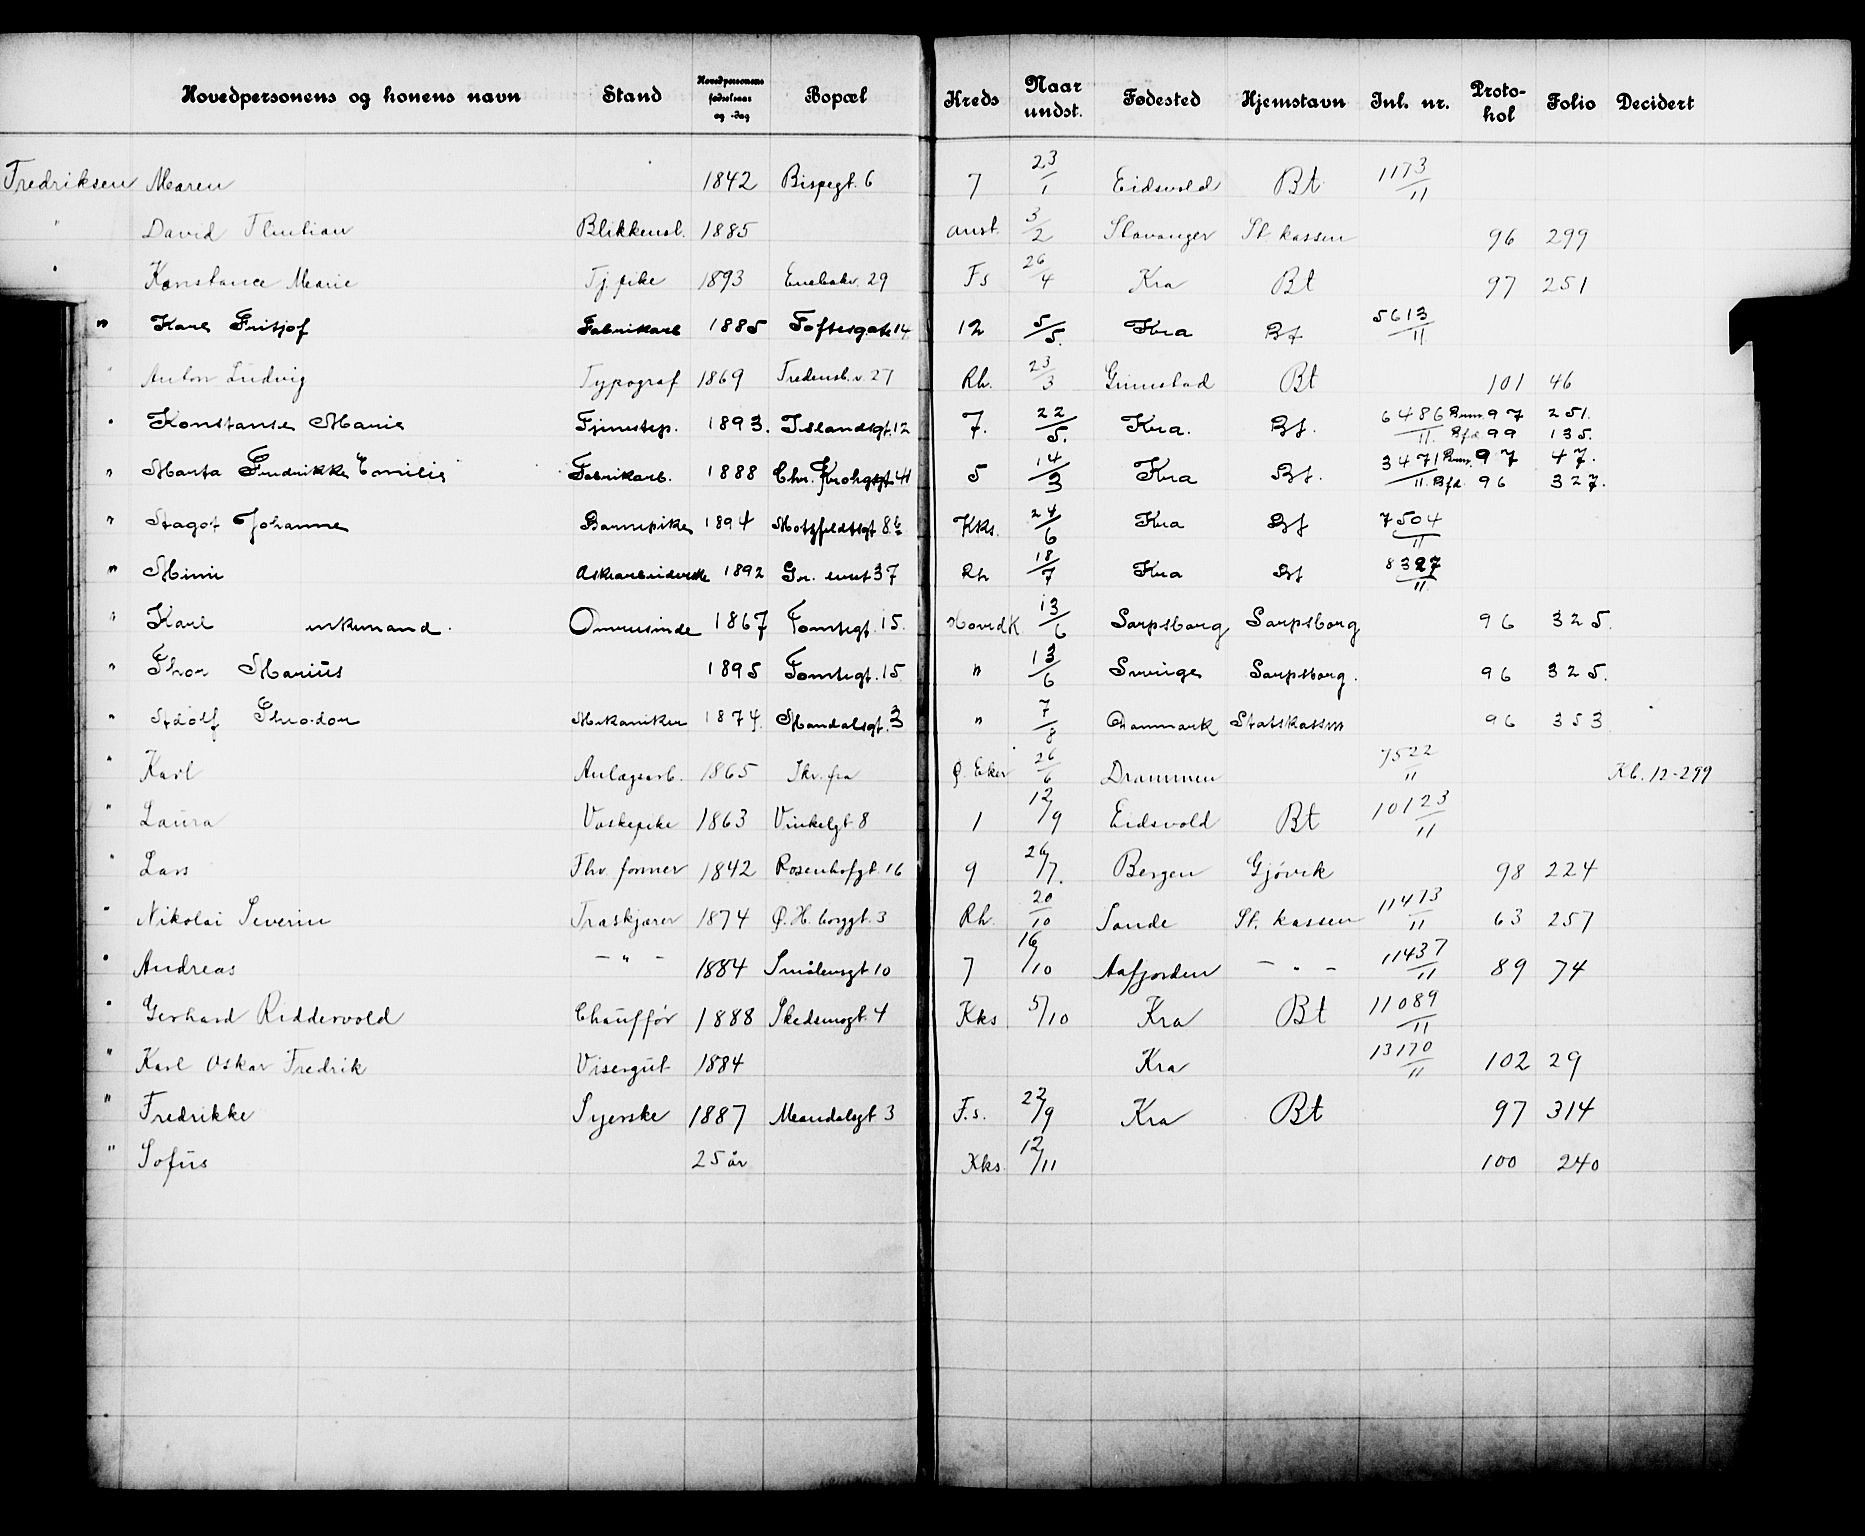 Hovedpersonens og konens navn Stand Hovedpersonens fødselsaar og -dag Bopæl Kreds Naar undst. Fødested Hjemstavn Inl. nr. Protokol Folio Decidert
Fredriksen Maren 1842 Bispegt. 6 7 23/1 Eidsvold Bt 1173/11
" David Blikkensl. 1885 anst. 3/2 Stavanger St. kassen 96 299
" Konstance Marie Tj. pike 1893 Enebakv. 29 Fs 26/4 Kra Bt 97 251
" Karl Fritjof Fabrikarb 1885 Toftesgate 14 12 5/5. Kra Bt 5613/11
" Anton Ludvig Typograf 1869 Fredensb.v. 27 Rh. 23/3 Grimstad Bt 101 46
" Konstanse Marie Tjenestep. 1893. Islandsgt. 12 7. 22/5. Kra. Bt. 6486/11 97 251.
Bfd. 99 135.
" Marta Fredrikke Emilie Fabrikarb. 1888 Chr. Krohgsgt. 41 5 14/3 Kra Bt. 3471/11 97 47.
Bfd. 96 327.
" Johanne Barnepike 1894 Motzfeldtsgt 8 Kks. 24/6 Kra Bt 7504/11
" Mimi 1892 Gr. 37 Rh 18/7 Kra Bt 8327/11
" Karl Omreisende 1867 Tomtegt. 15. Hovedk. 13/6 Sarpsborg Sarpsborg 96 325.
" Thor Marius 1895 Tomtegt. 15. " 13/6 Sverige Sarpsborg. 96 325.
" Adolf Theodor Mekaniker 1874. Mandalsgt. 3 " 7/8 Danmark Statskassen 96 353
" Karl Anlægsarb. 1865 Skr. fra Ø. Eker 26/6 Drammen 7522/11 Kb. 12-299
" Laura Vaskepike 1863 Vinkelgt 8 1 12/9 Eidsvold Bt 10123/11
" Lars Fhv. former 1842 Rosenhofgt. 16 9 26/7. Bergen Gjøvik 98 224
" Nikolai Severin Træskjærer 1874 Ø. H. borggt. 3 Rh. 20/10 Sande St. kassen 11473/11 63 257
" Andreas - " - 1884 Smålensgt 10 7 16/10 Aafjorden - " - 11437/11 89 74
" Gerhard Riddervold Chauffør 1888 Skedsmogt. 4 Kks 5/10 Kra Bt 11089/11
" Karl Oskar Fredrik Visergut 1884 Kra 13170/11 102 29
" Fredrikke Syerske 1887 Mandalsgt 3 F.s. 22/9 Kra Bt 97 314
" Sofus 25 år Kks 12/11 100 240